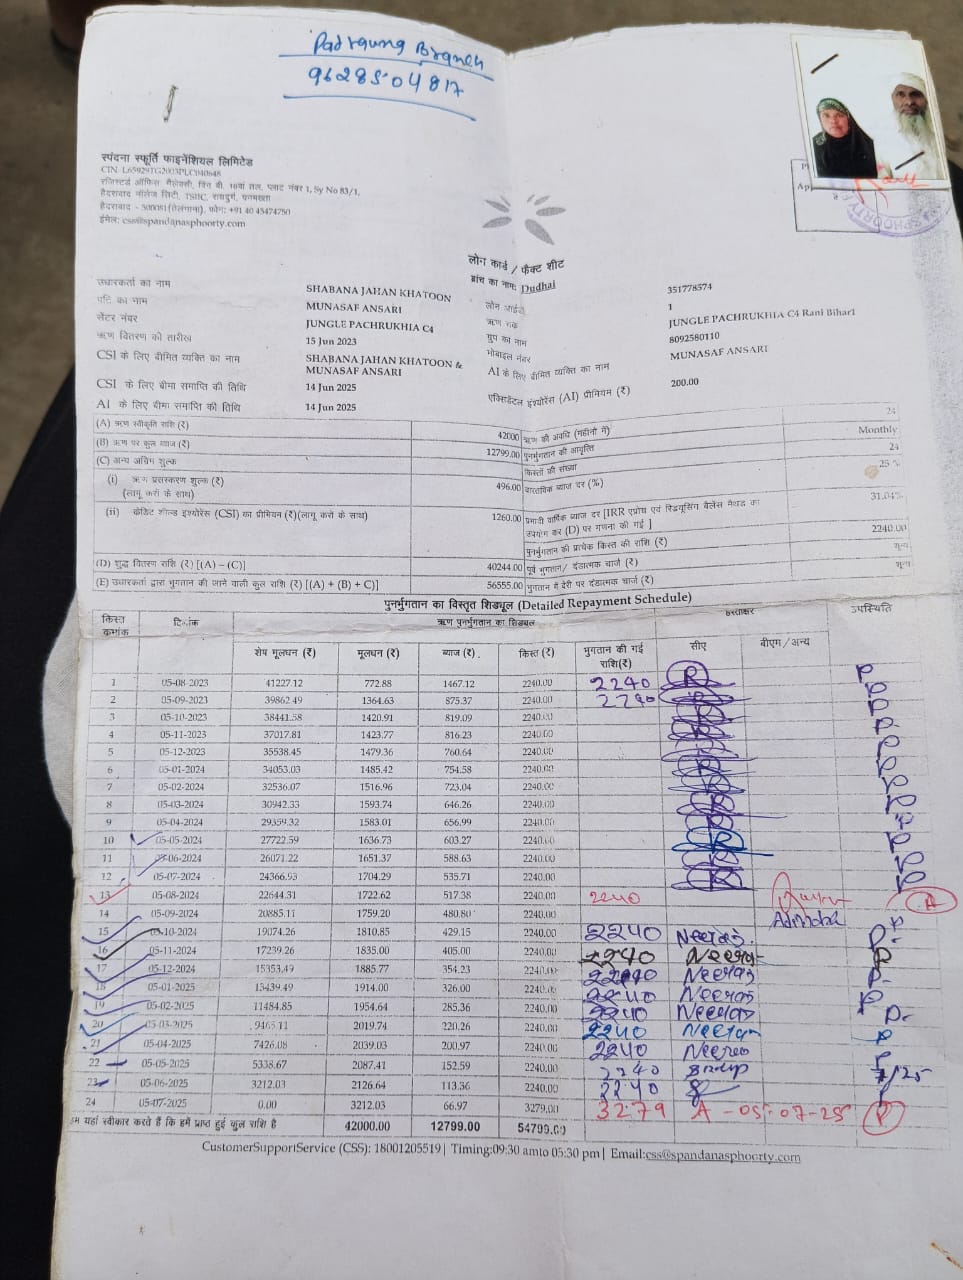 Padrauna Branch
9628504817
स्पंदना स्फूर्ति फाइनेंशियल लिमिटेड
CIN L65929TG2003PLC040648
हैदराबाद नॉलेज सिटी, TSIIC, रायदुर्ग,
हैदराबाद - 500081 (तेलंगाना), फोन: +91 40 45474750
ईमेल: css@spandanasphoorty.com
लोन कार्ड / फैक्ट शीट
ब्रांच का नाम: Dudhai
उधारकर्ता का नाम SHABANA JAHAN KHATOON लोन आईडी 351778574
पति का नाम MUNASAF ANSARI ऋण चक्र 1
सेंटर नंबर JUNGLE PACHRUKHIA C4 ग्रुप का नाम JUNGLE PACHRUKHIA C4 Rani Bihari
ऋण वितरण की तारीख 15 Jun 2023 मोबाइल नंबर 8092580110
CSI के लिए बीमित व्यक्ति का नाम SHABANA JAHAN KHATOON & MUNASAF ANSARI AI के लिए बीमित व्यक्ति का नाम MUNASAF ANSARI
CSI के लिए बीमा समाप्ति की तिथि 14 Jun 2025 एक्सिडेंटल इंश्योरेंस (AI) प्रीमियम (₹) 200.00
AI के लिए बीमा समाप्ति की तिथि 14 Jun 2025
(A) ऋण स्वीकृति राशि (₹) 42000 ऋण की अवधि (महीनों में) 24
(B) ऋण पर कुल ब्याज (₹) 12799.00 पुनर्भुगतान की आवृत्ति Monthly
(C) अन्य अग्रिम शुल्क किस्तों की संख्या 24
(i) ऋण प्रसंस्करण शुल्क (₹) (लागू करों के साथ) 496.00 वास्तविक ब्याज दर (%) 25 %
(ii) क्रेडिट शील्ड इंश्योरेंस (CSI) का प्रीमियम (₹)(लागू करों के साथ) 1260.00 प्रभावी वार्षिक ब्याज दर [IRR एप्रोच एवं रिड्यूसिंग बैलेंस मैथड का उपयोग कर (D) पर गणना की गई ] 31.04%
पुनर्भुगतान की प्रत्येक किस्त की राशि (₹) 2240.00
(D) शुद्ध वितरण राशि (₹) [(A) – (C)] 40244.00 पूर्व भुगतान/ दंडात्मक चार्ज (₹) शून्य
(E) उधारकर्ता द्वारा भुगतान की जाने वाली कुल राशि (₹) [(A) + (B) + C)] 56555.00 भुगतान में देरी पर दंडात्मक चार्ज (₹) शून्य
पुनर्भुगतान का विस्तृत शिड्यूल (Detailed Repayment Schedule)
किस्त क्रमांक दिनांक ऋण पुनर्भुगतान का शिड्यूल हस्ताक्षर उपस्थिति
शेष मूलधन (₹) मूलधन (₹) ब्याज (₹) किस्त (₹) भुगतान की गई राशि(₹) सीए बीएम/अन्य
1 05-08-2023 41227.12 772.88 1467.12 2240.00 2240 P
2 05-09-2023 39862.49 1364.63 875.37 2240.00 2240 P
3 05-10-2023 38441.58 1420.91 819.09 2240.00 P
4 05-11-2023 37017.81 1423.77 816.23 2240.00 P
5 05-12-2023 35538.45 1479.36 760.64 2240.00 P
6 05-01-2024 34053.03 1485.42 754.58 2240.00 P
7 05-02-2024 32536.07 1516.96 723.04 2240.00 P
8 05-03-2024 30942.33 1593.74 646.26 2240.00 P
9 05-04-2024 29359.32 1583.01 656.99 2240.00 P
10 05-05-2024 27722.59 1636.73 603.27 2240.00 P
11 05-06-2024 26071.22 1651.37 588.63 2240.00 P
12 05-07-2024 24366.93 1704.29 535.71 2240.00 P
13 05-08-2024 22644.31 1722.62 517.38 2240.00 2240 A
14 05-09-2024 20885.11 1759.20 480.80 2240.00
15 05-10-2024 19074.26 1810.85 429.15 2240.00 2240 Neeraj P
16 05-11-2024 17239.26 1835.00 405.00 2240.00 2240 Neeraj P
17 05-12-2024 15353.49 1885.77 354.23 2240.00 2240 Neeraj P
18 05-01-2025 13439.49 1914.00 326.00 2240.00 2240 Neeraj P
19 05-02-2025 11484.85 1954.64 285.36 2240.00 2240 Neeraj P
20 05-03-2025 9465.11 2019.74 220.26 2240.00 2240 Neeraj P
21 05-04-2025 7426.08 2039.03 200.97 2240.00 2240 Neeraj
22 05-05-2025 5338.67 2087.41 152.59 2240.00 2240
23 05-06-2025 3212.03 2126.64 113.36 2240.00 2240
24 05-07-2025 0.00 3212.03 66.97 3279.00 3279 A - 05-07-25 P
हम यहां स्वीकार करते हैं कि हमें प्राप्त हुई कुल राशि है 42000.00 12799.00 54799.00
CustomerSupportService (CSS): 18001205519| Timing:09:30 amto 05:30 pm| Email:css@spandanasphoorty.com